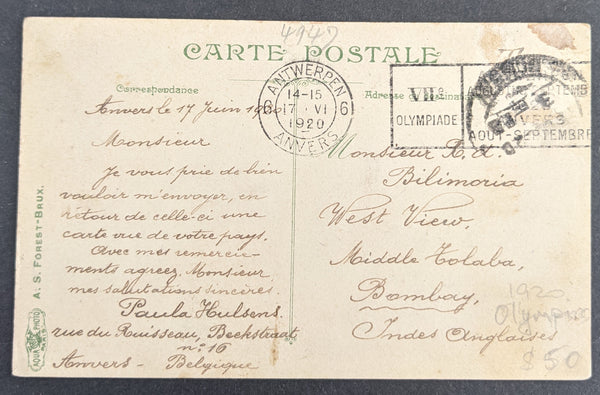 4947
CARTE POSTALE
Correspondance
Adresse du destinataire
ANTWERPEN
14-15
6 17 VI 6
1920
ANVERS
VIIe
OLYMPIADE
ANVERS
AOUT-SEPTEMBRE
Anvers le 17 Juin 1920
Monsieur
Je vous prie de bien
vouloir m'envoyer, en
retour de celle-ci une
carte vue de votre pays.
Avec mes remercie-
ments agreez, Monsieur,
mes salutations sincères.
Paula Hulsens.
rue du Ruisseau, Beekstraat
n: 16
Anvers - Belgique
Monsieur R. d.
Bilimoria
West View,
Middle Colaba,
Bombay,
Indes Anglaises
1920
Olympics
$50
A. S. FOREST-BRUX.
AQUA PHOTO
PARIS